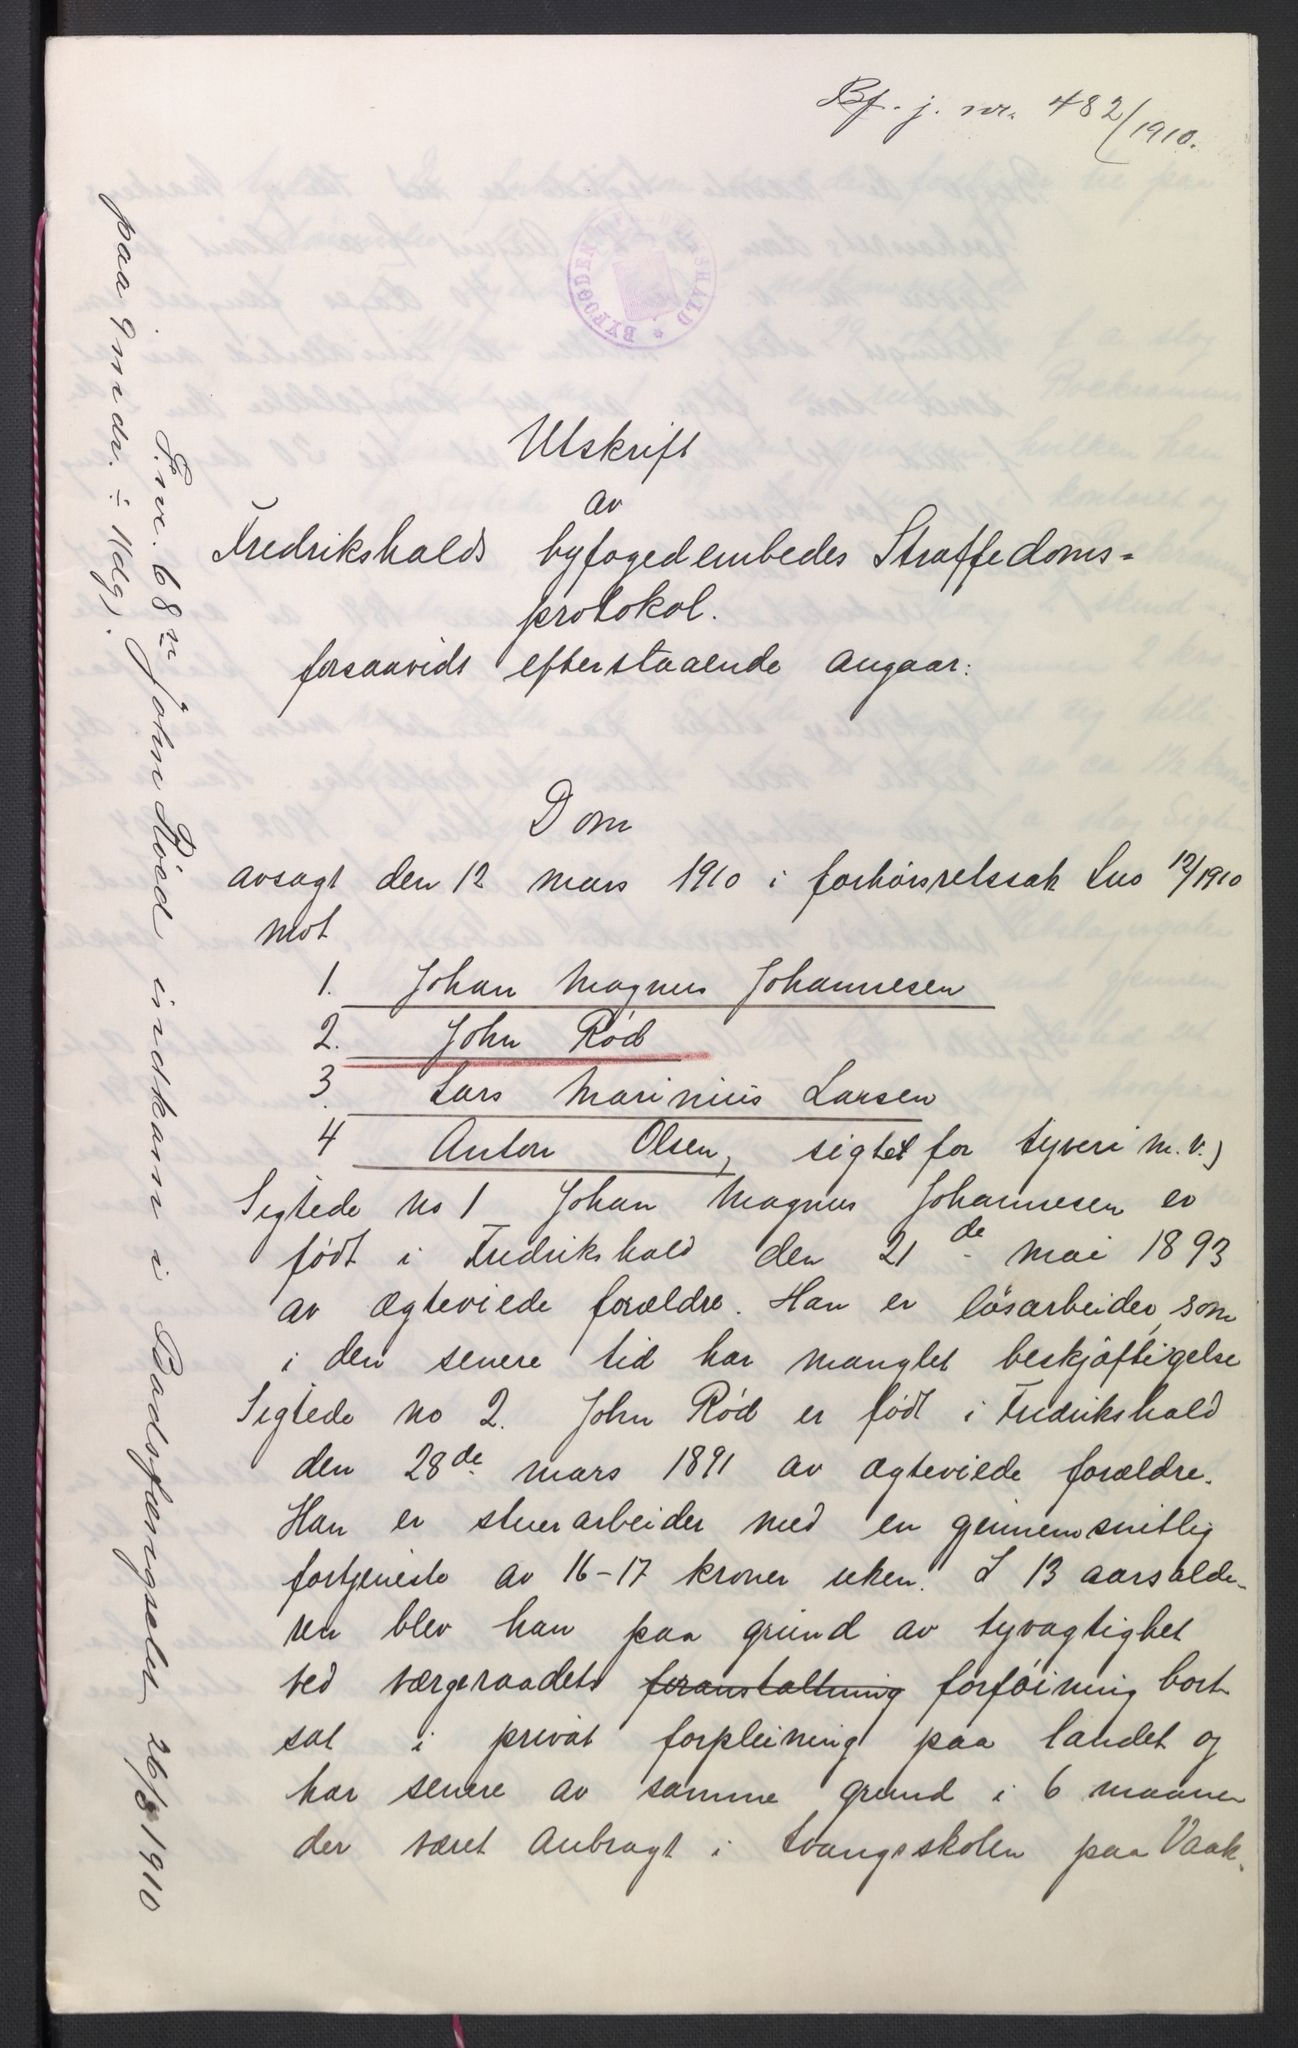 Bf. j. nr. 482/1910.
BYFOGDEN I FREDRIKSHALD
Utskrift
av
Fredrikshalds byfogedembedes Straffedoms-
protokol.
forsaavidt efterstaaende angaar:
Dom
avsagt den 12 mars 1910 i forhørsretssak Lno 12/1910
mot
1. Johan Magnus Johannesen
2. John Rød
3. Lars Marinius Larsen
4 Anton Olsen, sigtet for tyveri m.v.)
Sigtede no 1 Johan Magnus Johannesen er
født i Fredrikshald den 21de mai 1893
av ægteviede forældre. Han er løsarbeider, som
i den senere tid har manglet beskjæftigelse
Sigtede no 2. John Rød er født i Fredrikshald
den 28de mars 1891 av ægteviede forældre.
Han er stuerarbeider med en gjennemsnitlig
fortjeneste av 16-17 kroner uken. I 13 aarsalde-
ren blev han paa grund av tyvagtighet
ved værgeraadets foranstaltning forføining bort
sat i privat forpleining paa landet og
har senere av samme grund i 6 maane
der været anbragt i tvangsskolen paa Vaak.
F.nr. 68 John Röed indkom i Bodsfængselet 26/3 1910
paa 9 mndr. ÷ 11 dg).